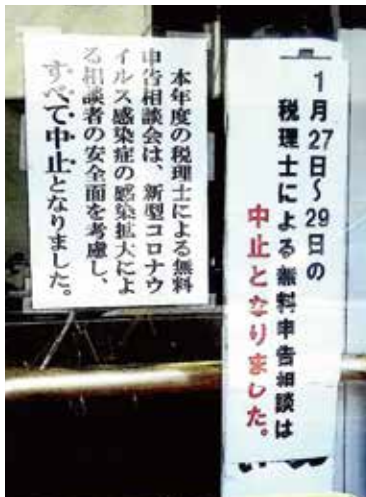 1月27日～29日の
税理士による無料申告相談は
中止となりました。
本年度の税理士による無料
申告相談会は、新型コロナウ
イルス感染症の感染拡大によ
る相談者の安全面を考慮し、
すべて中止となりました。